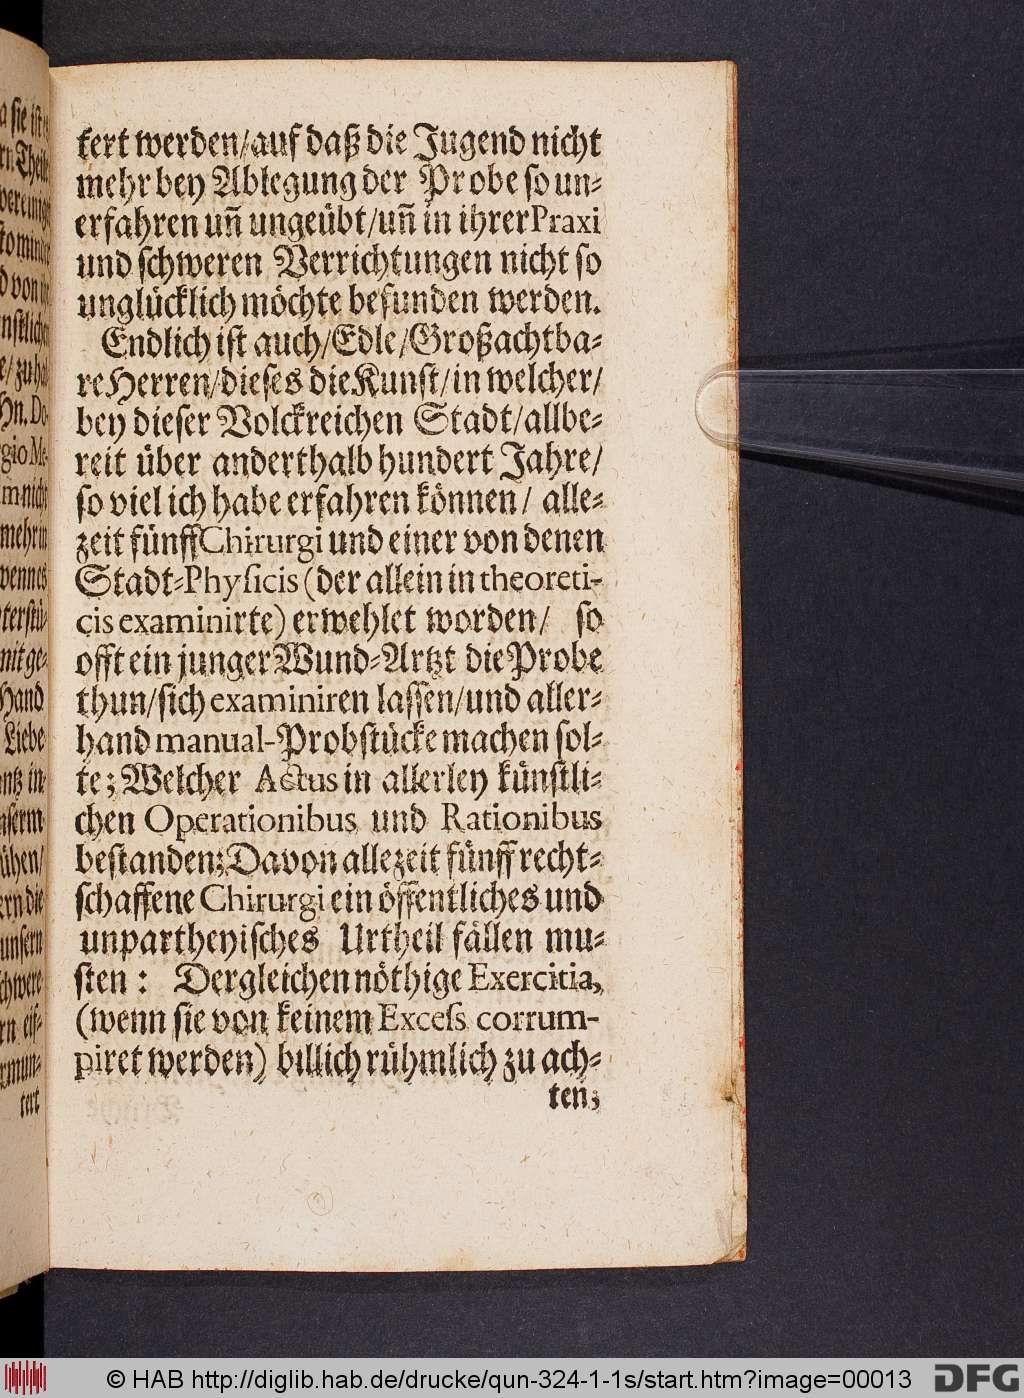 tert werden/auf daß die Jugend nicht
mehr bey Ablegung der Probe so un-
erfahren uñ ungeübt/uñ in ihrer Praxi
und schweren Verrichtungen nicht so
unglücklich möchte befunden werden.
Endlich ist auch/Edle/Großachtba-
re Herren/dieses die Kunst/in welcher/
bey dieser Volckreichen Stadt/allbe-
reit über anderthalb hundert Jahre/
so viel ich habe erfahren können/ alle-
zeit fünff Chirurgi und einer von denen
Stadt-Physicis (der allein in theoreti-
cis examinirte) erwehlet worden/ so
offt ein junger Wund-Artzt die Probe
thun/sich examiniren lassen/und aller-
hand manual-Probstücke machen sol-
te; Welcher Actus in allerley künstli-
chen Operationibus und Rationibus
bestanden; Davon allezeit fünff recht-
schaffene Chirurgi ein öffentliches und
unpartheyisches Urtheil fällen mu-
sten: Dergleichen nöthige Exercitia,
(wenn sie von keinem Excess corrum-
piret werden) billich rühmlich zu ach-
ten;
© HAB http://diglib.hab.de/drucke/qun-324-1-1s/start.htm?image=00013
DFG